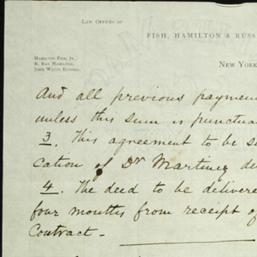 LAW OFFICES OF
FISH, HAMILTON & RUSS
HAMILTON FISH, JR.
R. RAY HAMILTON,
JOHN WATTS RUSSELL.
NEW YORK
And all previous paymen
unless this sum is punctua
3. This agreement to be s
cation of Dr Martinez de
4. The deed to be delivere
four months from receipt of
Contract -